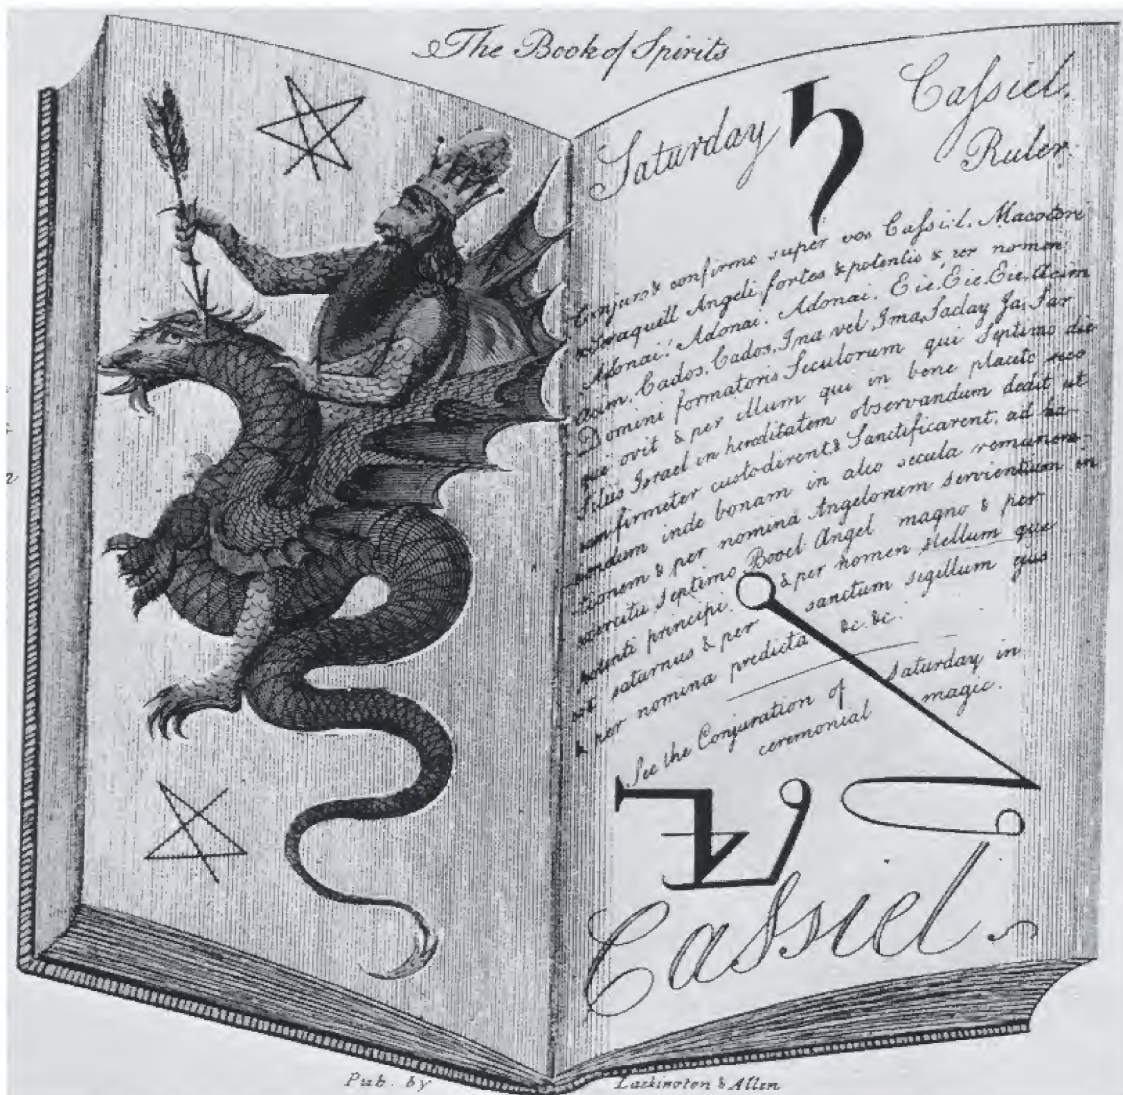 The Book of Spirits
Saturday ♄ Cassiel.
Ruler.
Conjuro & confirmo super vos Cassiel. Macatore
& Seraquiell Angeli fortes & potentis & per nomen
Adonai. Adonai. Adonai. Eie, Eie, Eie,
acim. Cados, Cados, Ina vel Ima, Saday Ja, Sar
Domini formatoris Seculorum qui Septimo die
que ovit & per illum qui in bene placito suo
filiis Israel in hereditatem observandum dedit ut
eum firmeter custodirent & Sanctificarent, ad ha-
endum inde bonam in alio secula remuner
ationem & per nomina Angelorum servientium in
exercitu septimo Booel Angel magno &
potenti principi & per nomen stellum que
est saturnus & per sanctum sigillum ejus
& per nomina predicta &c. &c.
See the Conjuration of Saturday in
ceremonial magic.
Cassiel.
Pub. by Lackington & Allen